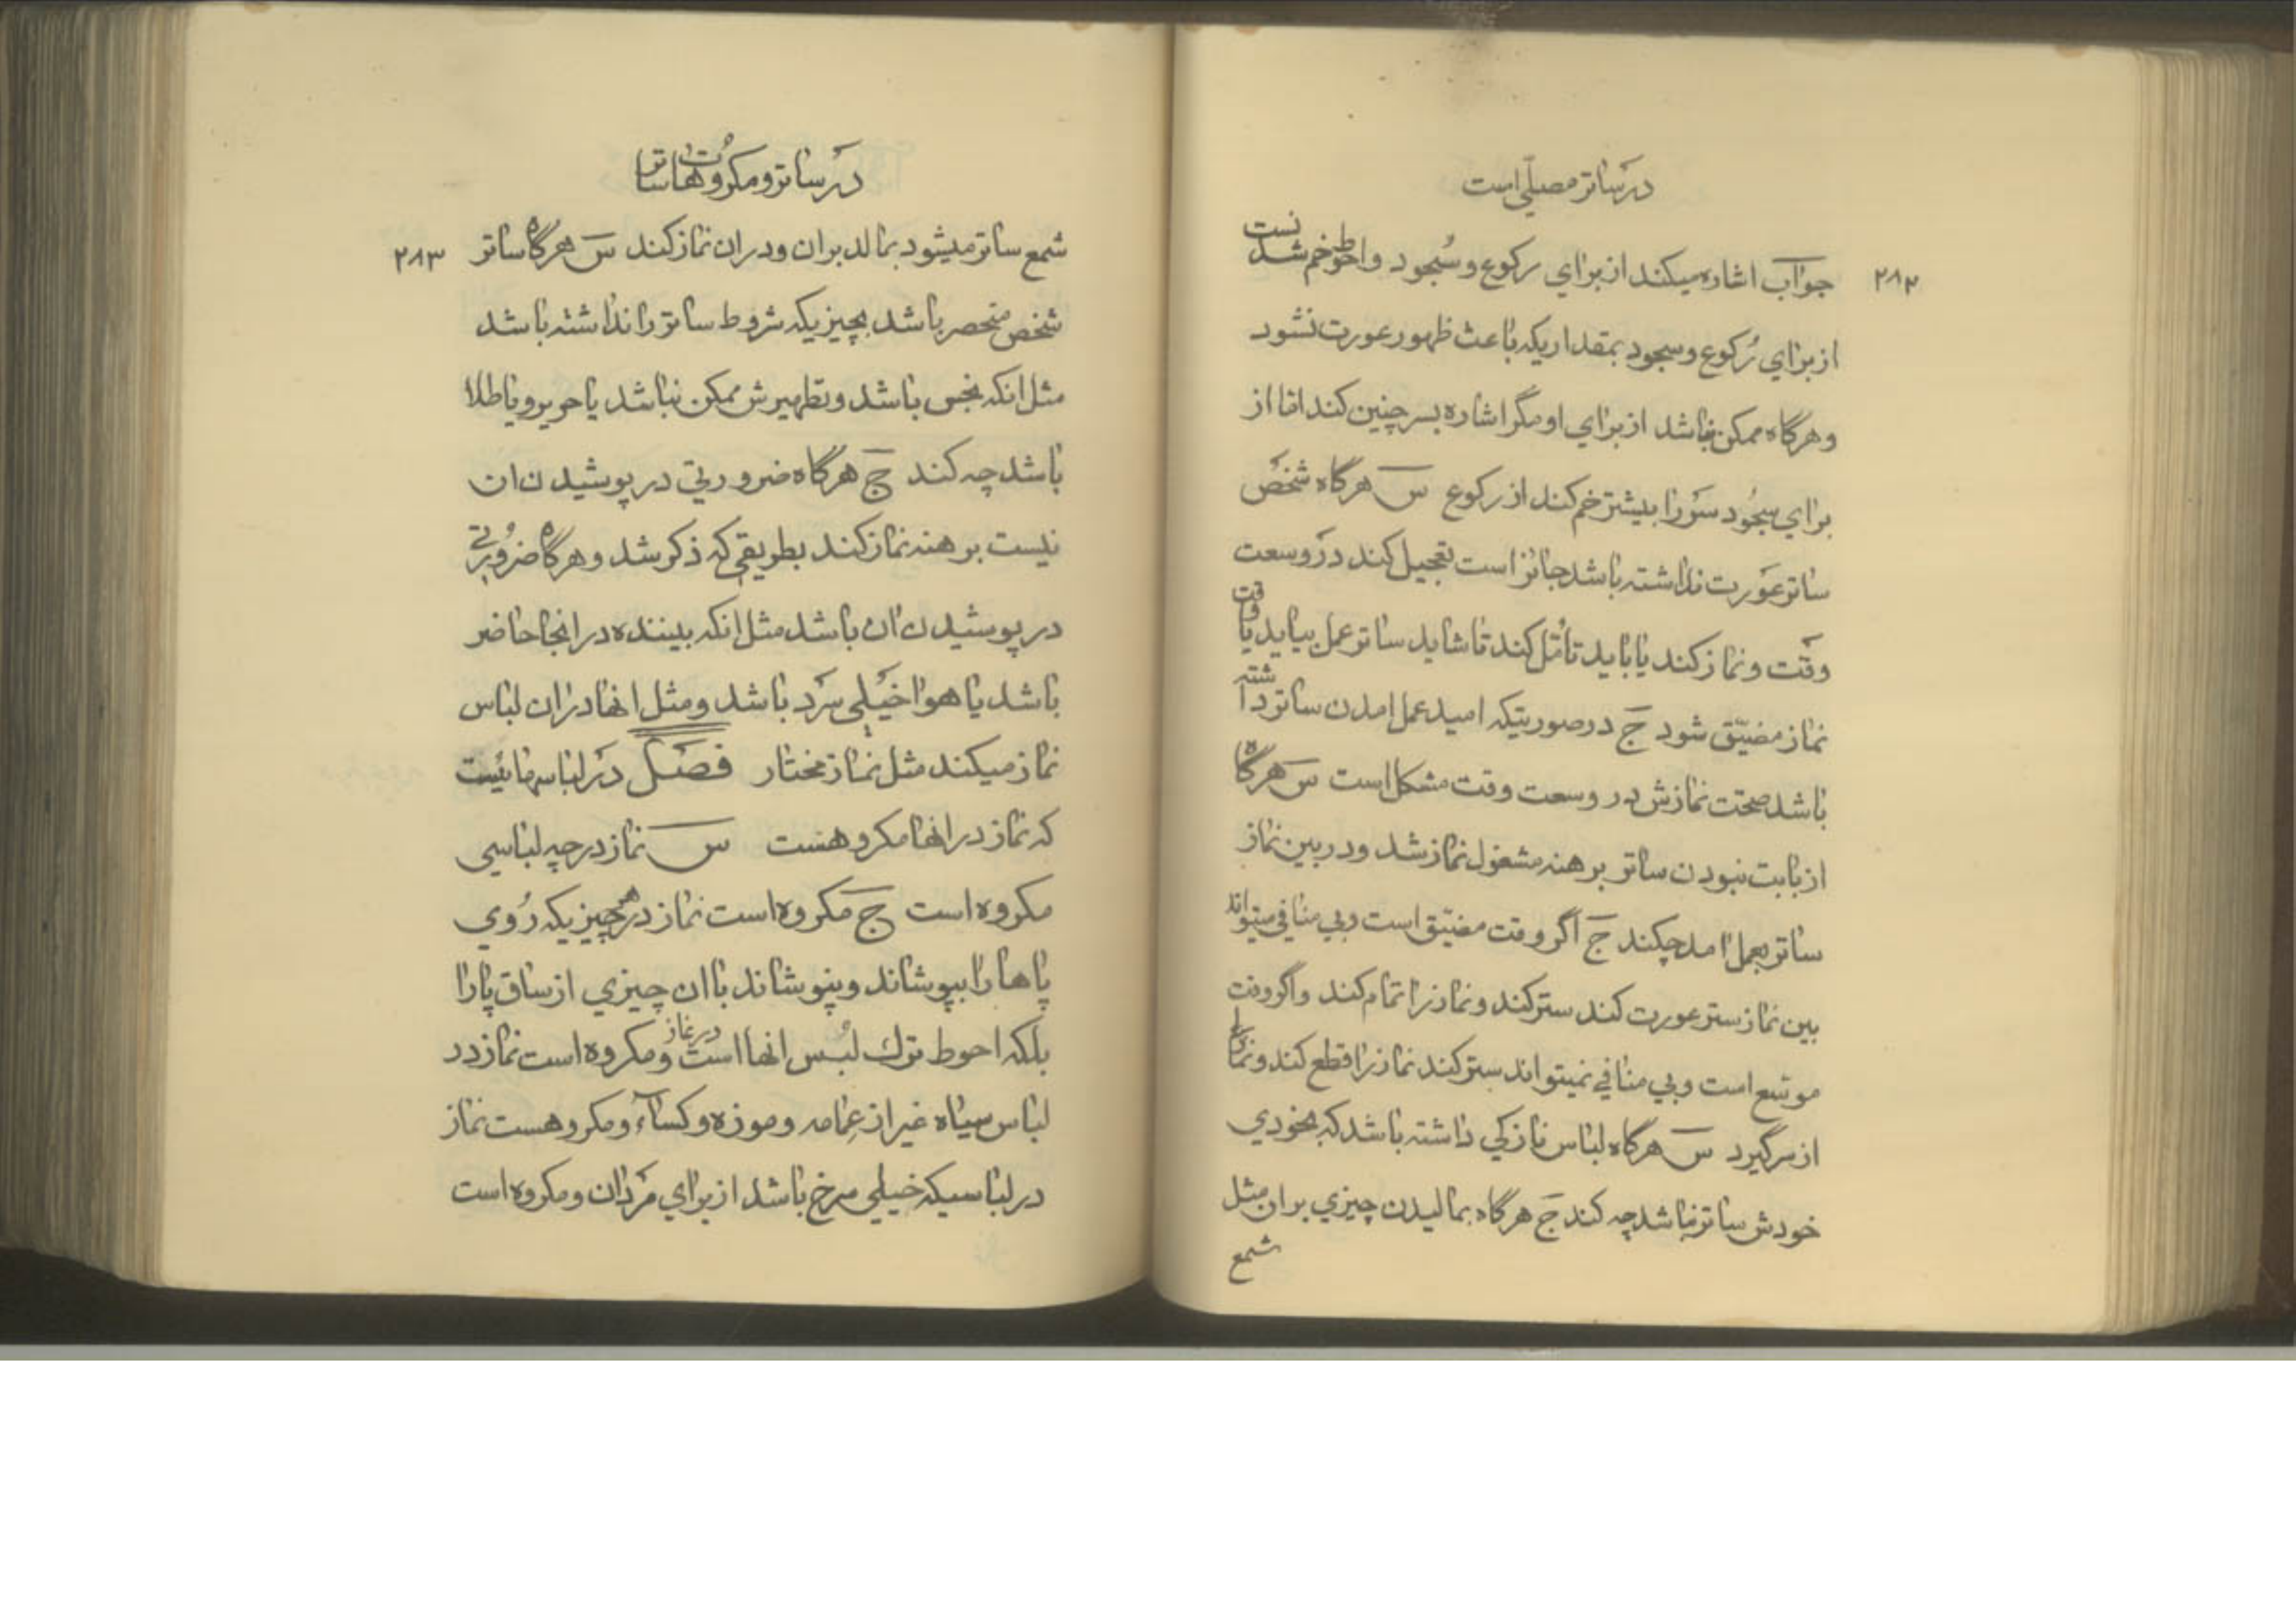 در ساتر مصلّی است
۲۸۲
جواب اشاره میکند از برای رکوع و سجود و احوط خم شدنست
از برای رکوع و سجود بمقداریکه باعث ظهور عورت نشود
و هرگاه ممکن نباشد از برای او مگر اشاره بسر چنین کند امّا از
برای سجود سر را بیشتر خم کند از رکوع س هرگاه شخص
ساتر عورت نداشته باشد جائز است تعجیل کند در وسعت
وقت و نماز کند یا باید تأمّل کند تا شاید ساتر عمل بیاید یا وقت
نماز مضیّق شود ج در صورتیکه امید عمل امدن ساتر داشته
باشد صحّت نمازش در وسعت وقت مشکل است س هرگاه
از بابت نبودن ساتر برهنه مشغول نماز شد و در بین نماز
ساتر بعمل امد چکند ج اگر وقت مضیّق است و بی منافی میتواند
بین نماز ستر عورت کند ستر کند و نماز را تمام کند و اگر وقت
موسّع است و بی منافی نمیتواند ستر کند نماز را قطع کند و نماز را
از سر گیرد س هرگاه لباس نازکی داشته باشد که بخودی
خودش ساتر نباشد چه کند ج هرگاه بمالیدن چیزی بران مثل
شمع
در ساتر و مکروهات ساتر
۲۸۳
شمع ساتر میشود بمالد بران و دران نماز کند س هرگاه ساتر
شخص منحصر باشد بچیزیکه شروط ساتر را نداشته باشد
مثل انکه نجس باشد و تطهیرش ممکن نباشد یا حریر و یا طلا
باشد چه کند ج هرگاه ضرورتی در پوشیدن ان
نیست برهنه نماز کند بطریقی که ذکر شد و هرگاه ضرورتی
در پوشیدن ان باشد مثل انکه بیننده در انجا حاضر
باشد یا هوا خیلی سرد باشد و مثل انها دران لباس
نماز میکند مثل نماز مختار فصل در لباسهائیست
که نماز در انها مکروهست س نماز در چه لباسی
مکروه است ج مکروه است نماز در هر چیزیکه روی
پاها را بپوشاند و نپوشاند با ان چیزی از ساق پا را
بلکه احوط ترك لبس انها است در نماز و مکروه است نماز در
لباس سیاه غیر از عمامه و موزه و کساء و مکروهست نماز
در لباسیکه خیلی سرخ باشد از برای مردان و مکروه است